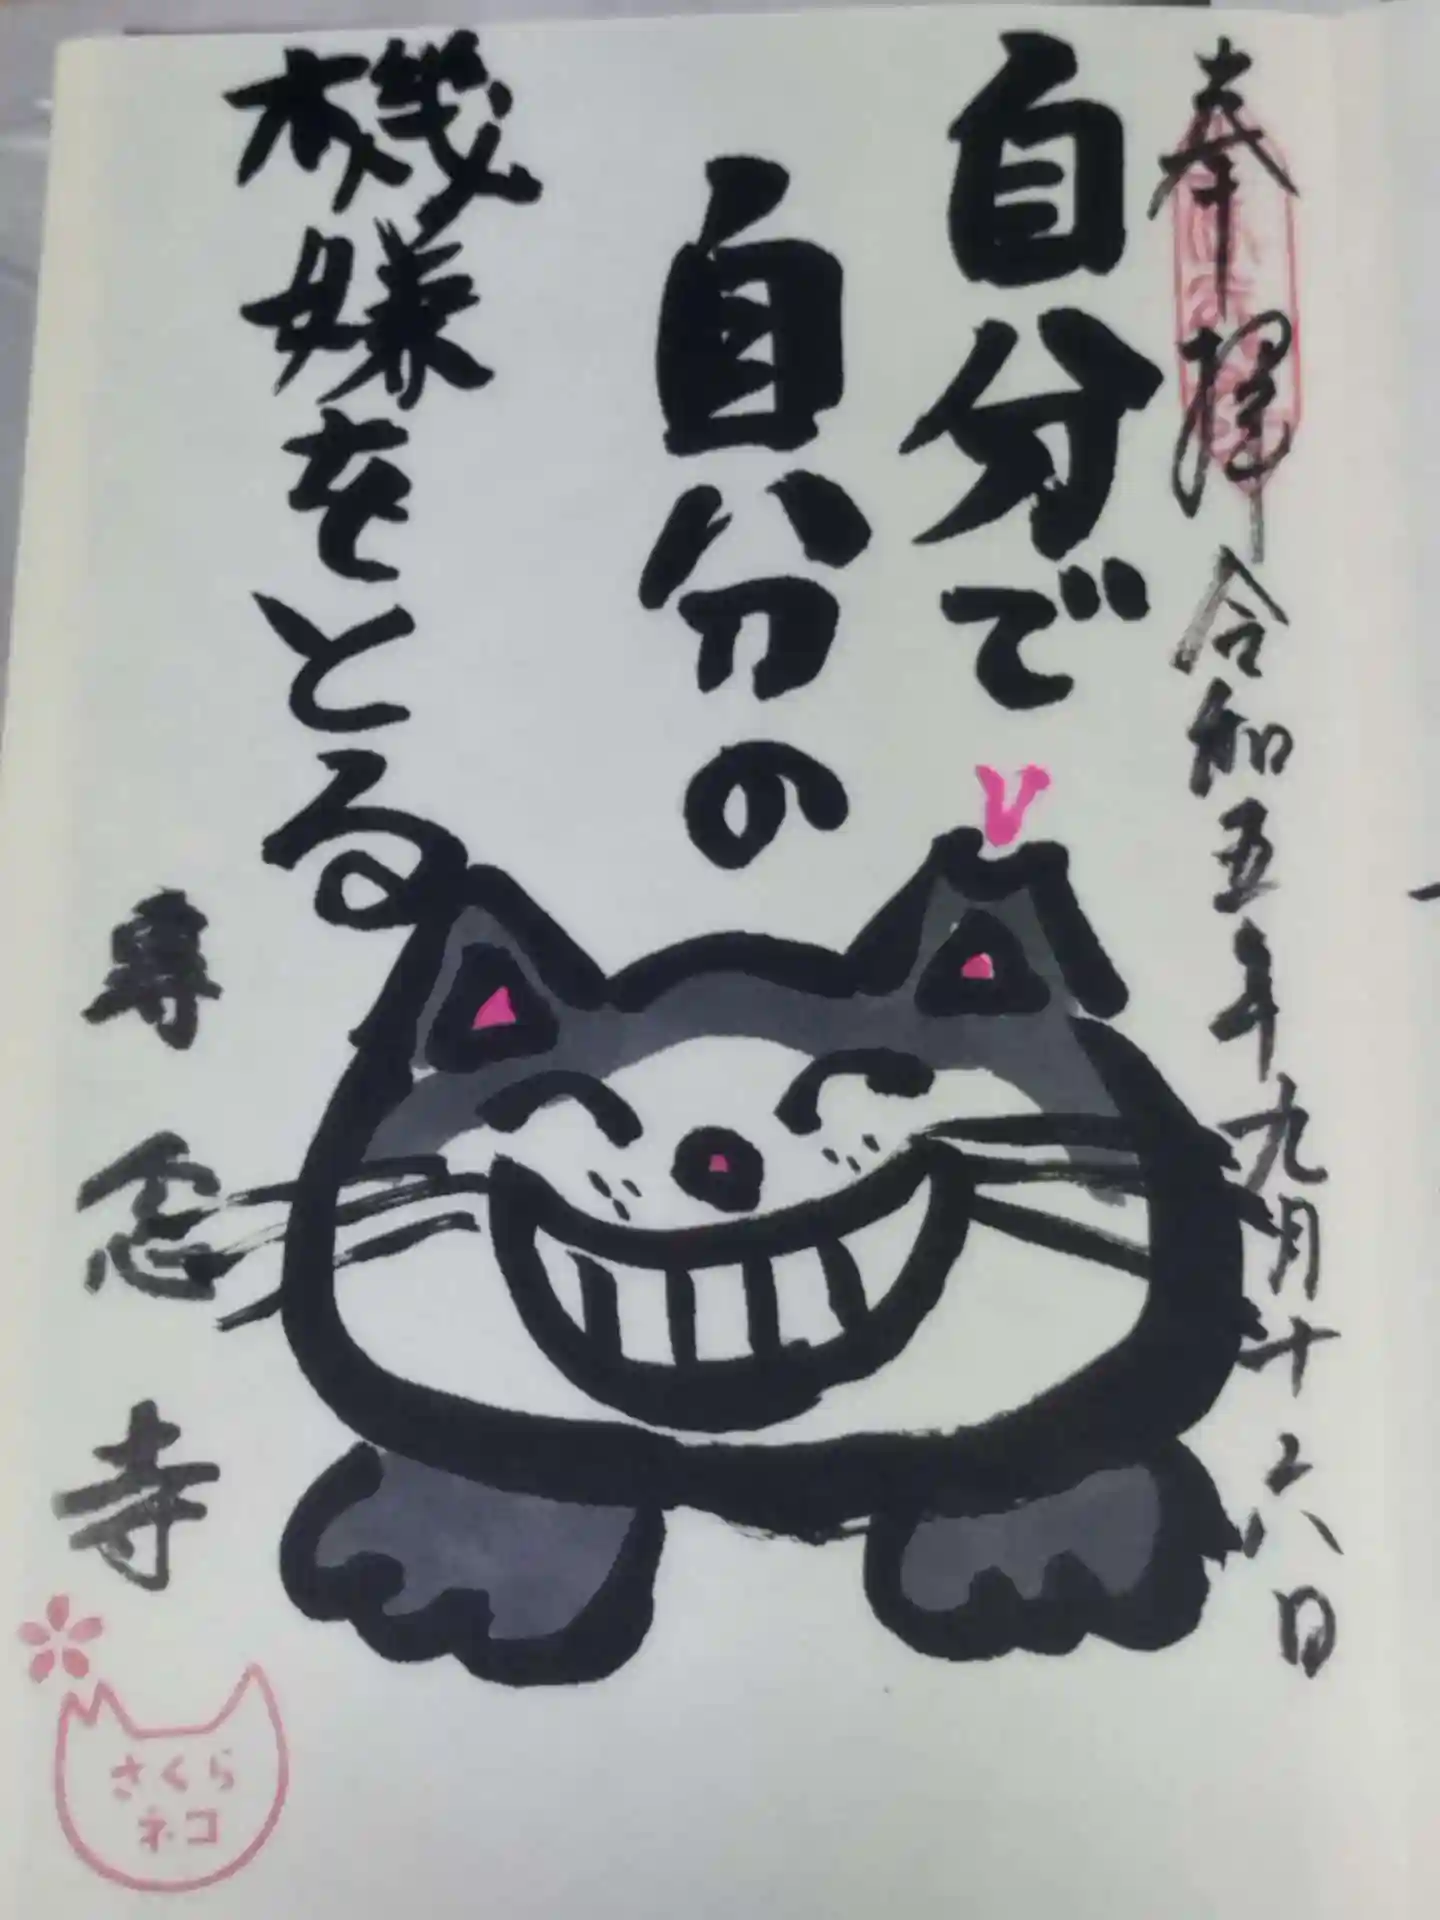 奉拝
令和五年九月十六日
自分で
自分の
機嫌をとる
專念寺
さくら
ネコ